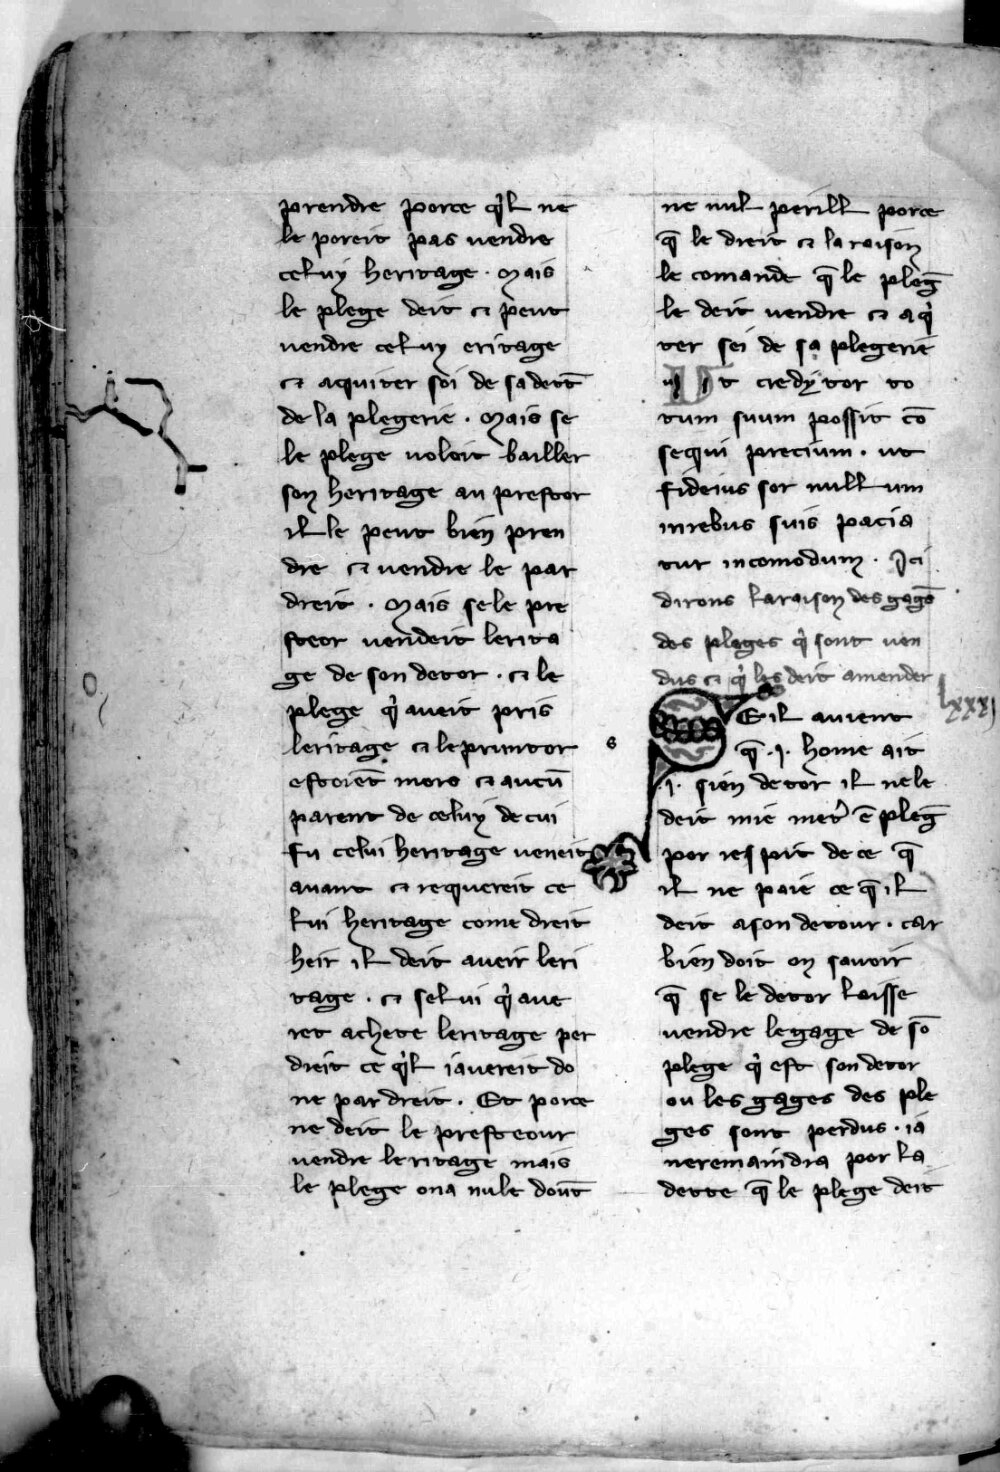 prendre porce q̓l ne
le poreit pas uendre
celuy heritage . Mais
le plege deit ⁊ peut
uendre celuy eritage
⁊ aquiter soi de sa dett̄
de la plegerie . Mais se
le plege uoloit bailler
son heritage au prestor
il le peut bien pren
dre ⁊ uendre le par
dreit . Mais se le pre
steor uendeit lerita
ge de son detor . ⁊ le
plege q̓ aueit pris
leritage ⁊ le pruntor
estoiēt mors ⁊ aucū
parent de celuy de cui
fu celui heritage ueneit
auant ⁊ requereit ce
lui heritage come dreit
heir il deit aueir leri
tage . ⁊ selui q̓ aue
ret achete leritage per
dreit ce q̓l iauereit do
ne par dreit . Et porce
ne deit le presteour
uendre leritage mais
le plege ona nule dout̄
ne nul perill porce
q̄ le dreit ⁊ la raison
le comande q̄ le pleḡ
le deit uendre ⁊ aq̓
ter sei de sa plegerie
Ut credytor to
tum suum possit cō
sequi precium . ut
fideius sor nullum
in rebus suis pacia
tur incomodum . Ici
dirons la raison des gages
des pleges q̓ sont uen
dus ⁊ q̓ les deit amender
lxxxj
s
Eil auient
q̄ .i. home ait
.i. sien detor il ne le
deit mie met̓ ē pleḡ
por respit de ce q̄
il ne paie ce q̄ il
deit a son detour . car
bien doit on sauoir
q̄ se le detor laisse
uendre le gage de sō
plege q̓ est son detor
ou les gages des ple
ges sont perdus . ia
ne remaindra por la
dette q̄ le plege deit